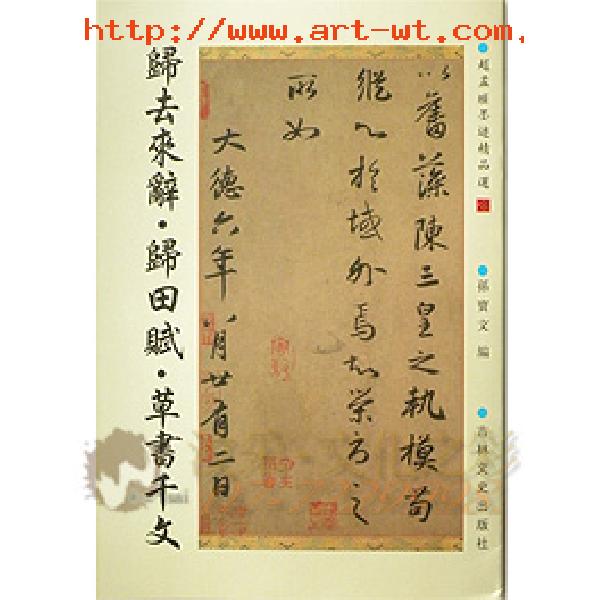 http://www.art-wt.com.
歸去來辭·歸田賦·草書千文
以舊藻陳三皇之軌模苟
縱心於域外焉知榮辱之
所如
大德六年八月廿有二日
趙孟頫墨迹精品選
孫寶文 編
吉林文史出版社